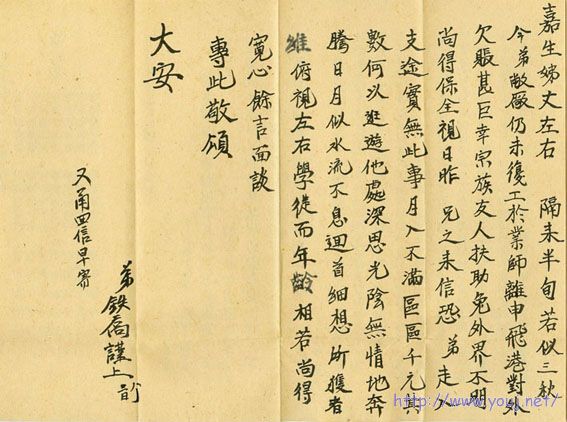 嘉生姊丈左右 隔未半旬若似三秋
今弟敝廠仍未復工於業師離申飛港對外
欠賬甚巨幸宗族友人扶助免外界不明
尚得保全視日昨 兄之来信恐 弟走入
支途實無此事月入不滿區區千元
數何以逛遊他處深思光陰無情地奔
騰日月似水流不息迴首細想所獲者
維俯視左右學徒而年齡相若尚得
寬心餘言面談
專此敬頌
大安
弟鉄喬謹上
又甬四信早寄
http://www.youj.net/